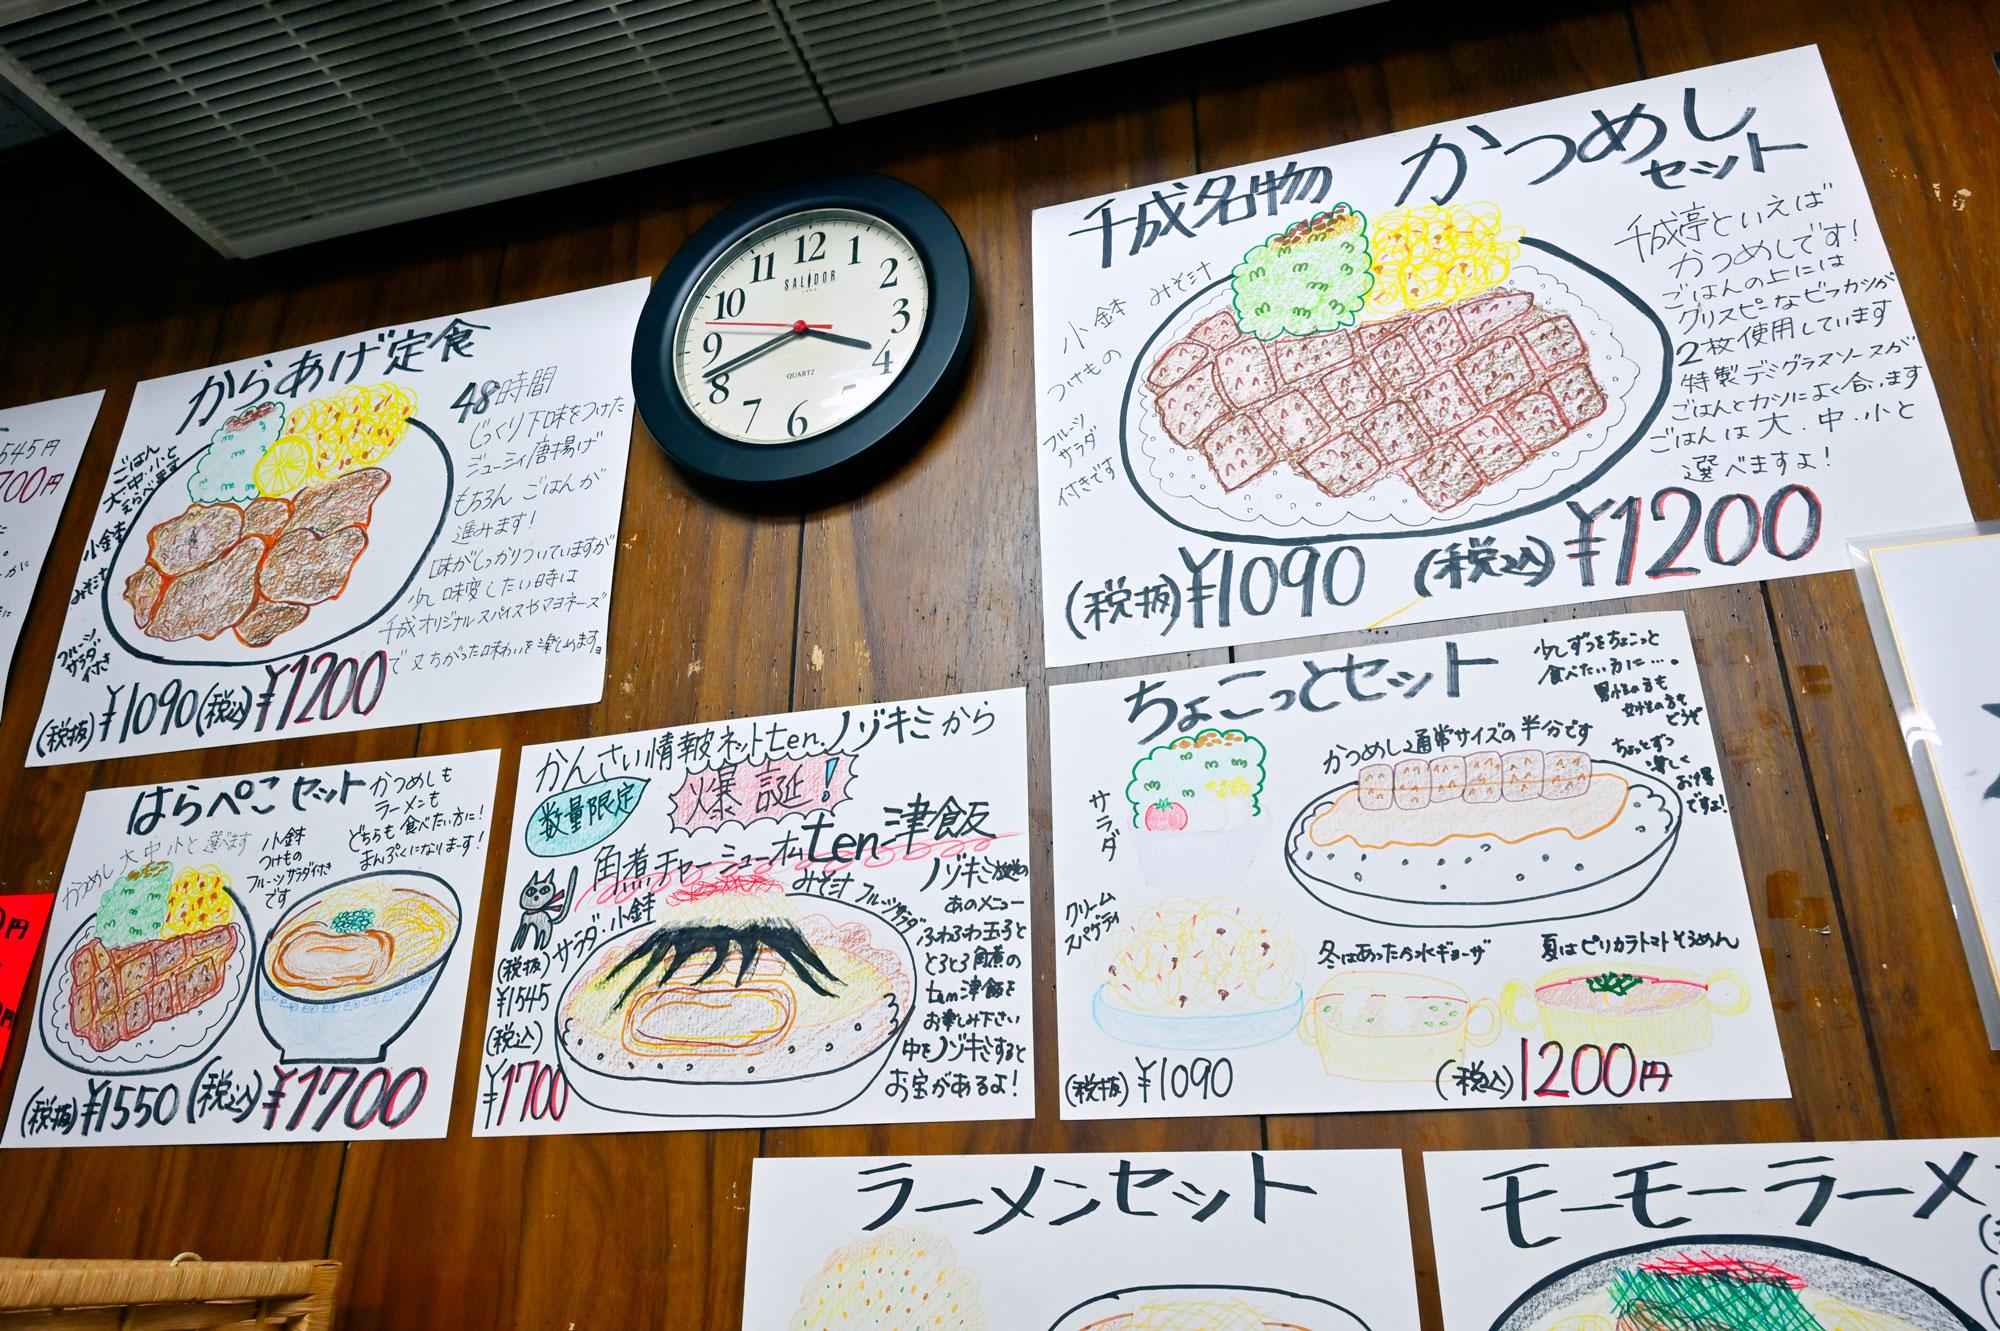 からあげ定食
48時間
じっくり下味をつけた
ジューシィ唐揚げ
もちろん ごはんが
進みます!
味がしっかりついていますが
少し味変したい時は
千成オリジナルスパイスやマヨネーズ
で又ちがった味わいを楽しめます。
ごはん
大・中・小と
えらべます
小鉢
みそ汁
フルーツ
サラダ
付き
(税抜)¥1090(税込)¥1200
12
1
2
3
4
6
7
8
9
10
11
SALIDOR
QUARTZ
千成名物 かつめし
セット
小鉢 みそ汁
つけもの
フルーツ
サラダ
付きです
千成亭といえば
かつめしです!
ごはんの上には
クリスピーなビフカツが
2枚使用しています
特製デミグラスソースが
ごはんとカツによく合います
ごはんは大・中・小と
選べますよ!
(税抜)¥1090 (税込)¥1200
545円
700円
はらぺこセット
かつめしも
ラーメンも
どちらも食べたい方に!
まんぷくになりまーす!
かつめし大中小と選べます
小鉢
つけもの
フルーツサラダ付き
です
(税抜)¥1550(税込)¥1700
かんさい情報ネットten.ノゾキミから
数量限定
爆誕!
角煮チャーシューオムten津飯
みそ汁 フルーツサラダ
サラダ・小鉢
(税抜)
¥1545
(税込)
¥1700
ノゾキミ放送の
あのメニュー
ふわふわ玉子と
とろとろ角煮の
ten津飯を
お楽しみ下さい
中をノゾキミすると
お宝があるよ!
ちょこっとセット
少しずつをちょこっと
食べたい方に…。
男性の方も
女性の方も
どうぞ
ちょっとずつ
楽しく
お得
ですよ!
かつめし通常サイズの半分です
サラダ
クリーム
スパゲティ
冬はあったか水ギョーザ
夏はピリカラトマトそうめん
(税抜)¥1090 (税込)1200円
ラーメンセット
モーモーラーメ